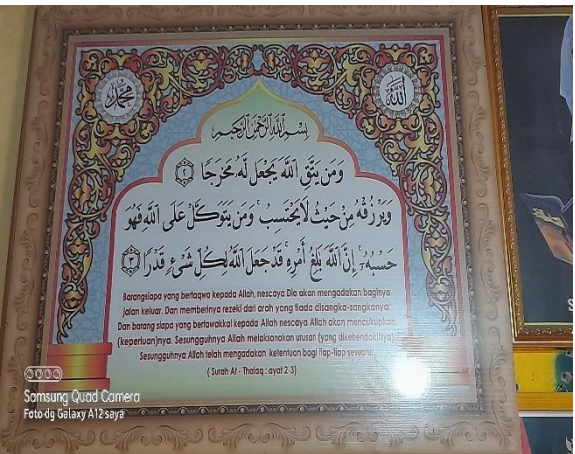 محمد
الله
بسم الله الرحمن الرحيم
وَمَن يَتَّقِ اللَّهَ يَجْعَل لَّهُ مَخْرَجًا ٢
وَيَرْزُقْهُ مِنْ حَيْثُ لَا يَحْتَسِبُ ۚ وَمَن يَتَوَكَّلْ عَلَى اللَّهِ فَهُوَ
حَسْبُهُ ۚ إِنَّ اللَّهَ بَالِغُ أَمْرِهِ ۚ قَدْ جَعَلَ اللَّهُ لِكُلِّ شَيْءٍ قَدْرًا ٣
Barangsiapa yang bertaqwa kepada Allah, nescaya Dia akan mengadakan baginya
jalan keluar. Dan memberinya rezeki dari arah yang tiada disangka-sangkanya.
Dan barang siapa yang bertawakkal kepada Allah nescaya Allah akan mencukupkan
(keperluan)nya. Sesungguhnya Allah melaksanakan urusan (yang dikehendakiNya)
Sesungguhnya Allah telah mengadakan ketentuan bagi tiap-tiap sesuatu.
( Surah At - Thalaq : ayat 2-3)
Samsung Quad Camera
Foto dg Galaxy A12 saya